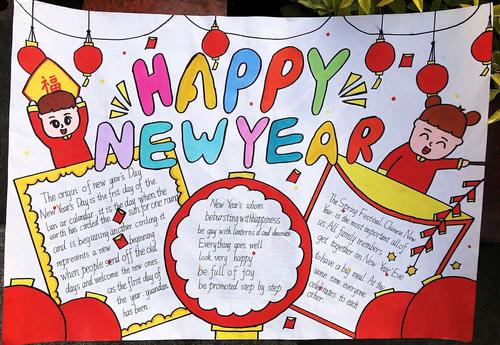 福
HAPPY
NEW YEAR
The origin of new year's Day
New Year's Day is the first day of the
lun ar calendar. it is the day when the
earth has circled the sun for one round
and is beginning another circling it
represents a new beginning
when people send off the old
days and welcome the new ones
as the first day of
the year. yuandan
has been.
New Year's idiom
bebursting withhappiness
be gay with lanterns and decorate
Everything goes well
look very happy
be full of joy
be promoted step by step
The Spring Festival, Chinese New
Year is the most important all of
us. All family members
get together on New Year Eve
to have a big meal. At the
same time everyone
celebrates to each
other.